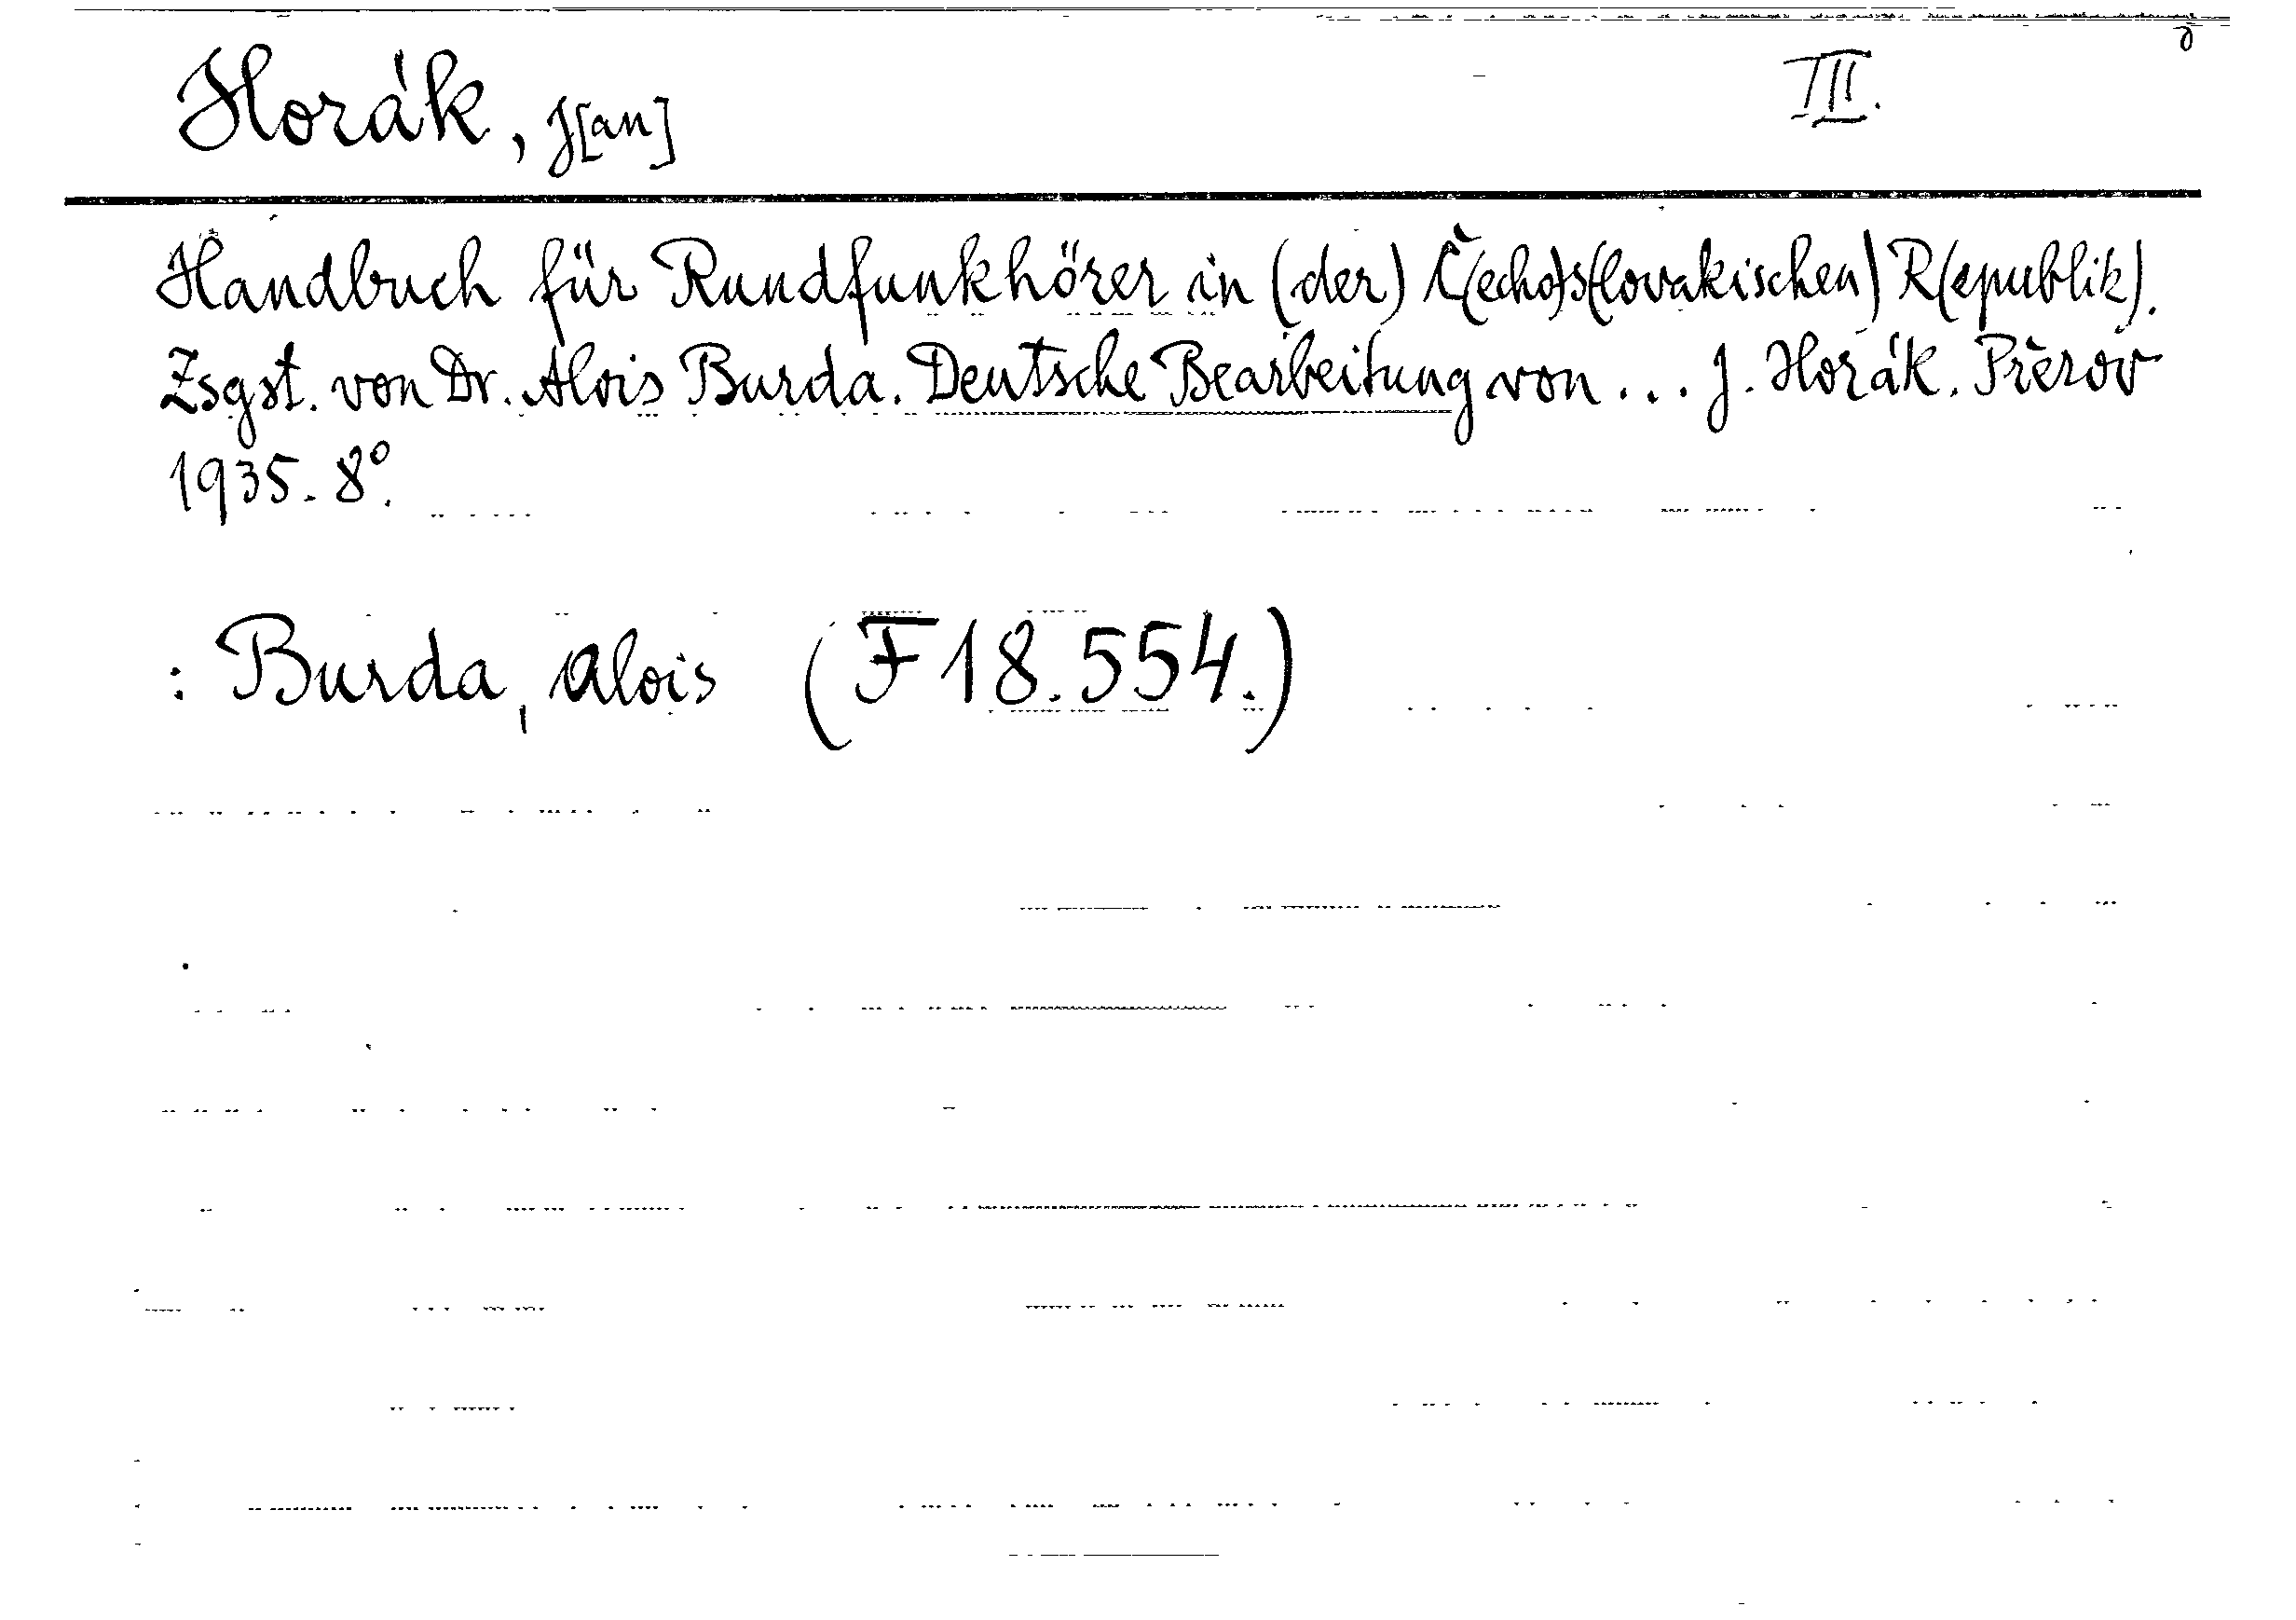 Horák, J[an] III.
Handbuch für Rundfunkhörer in (der) Č(echo)s(lovakischen) R(epublik).
Zsgst. von Dr. Alois Burda. Deutsche Bearbeitung von ... J. Horák. Přerov
1935. 8°.
: Burda, Alois (F 18.554.)